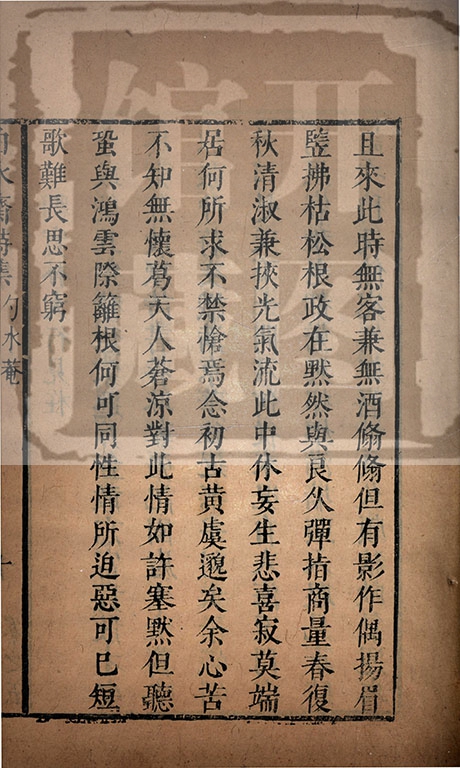 且來此時無客兼無酒翛翛但有影作偶揚眉
豎拂枯松根政在默然與良久彈指商量春復
秋清淑兼挾光氣流此中休妄生悲喜寂莫端
居何所求不禁愴焉念初古黄虞邈矣余心苦
不知無懷葛天人蒼涼對此情如許塞默但聽
蛩與鴻雲際籬根何可同性情所迫惡可已短
歌難長思不窮
水齋詩集
勺水菴